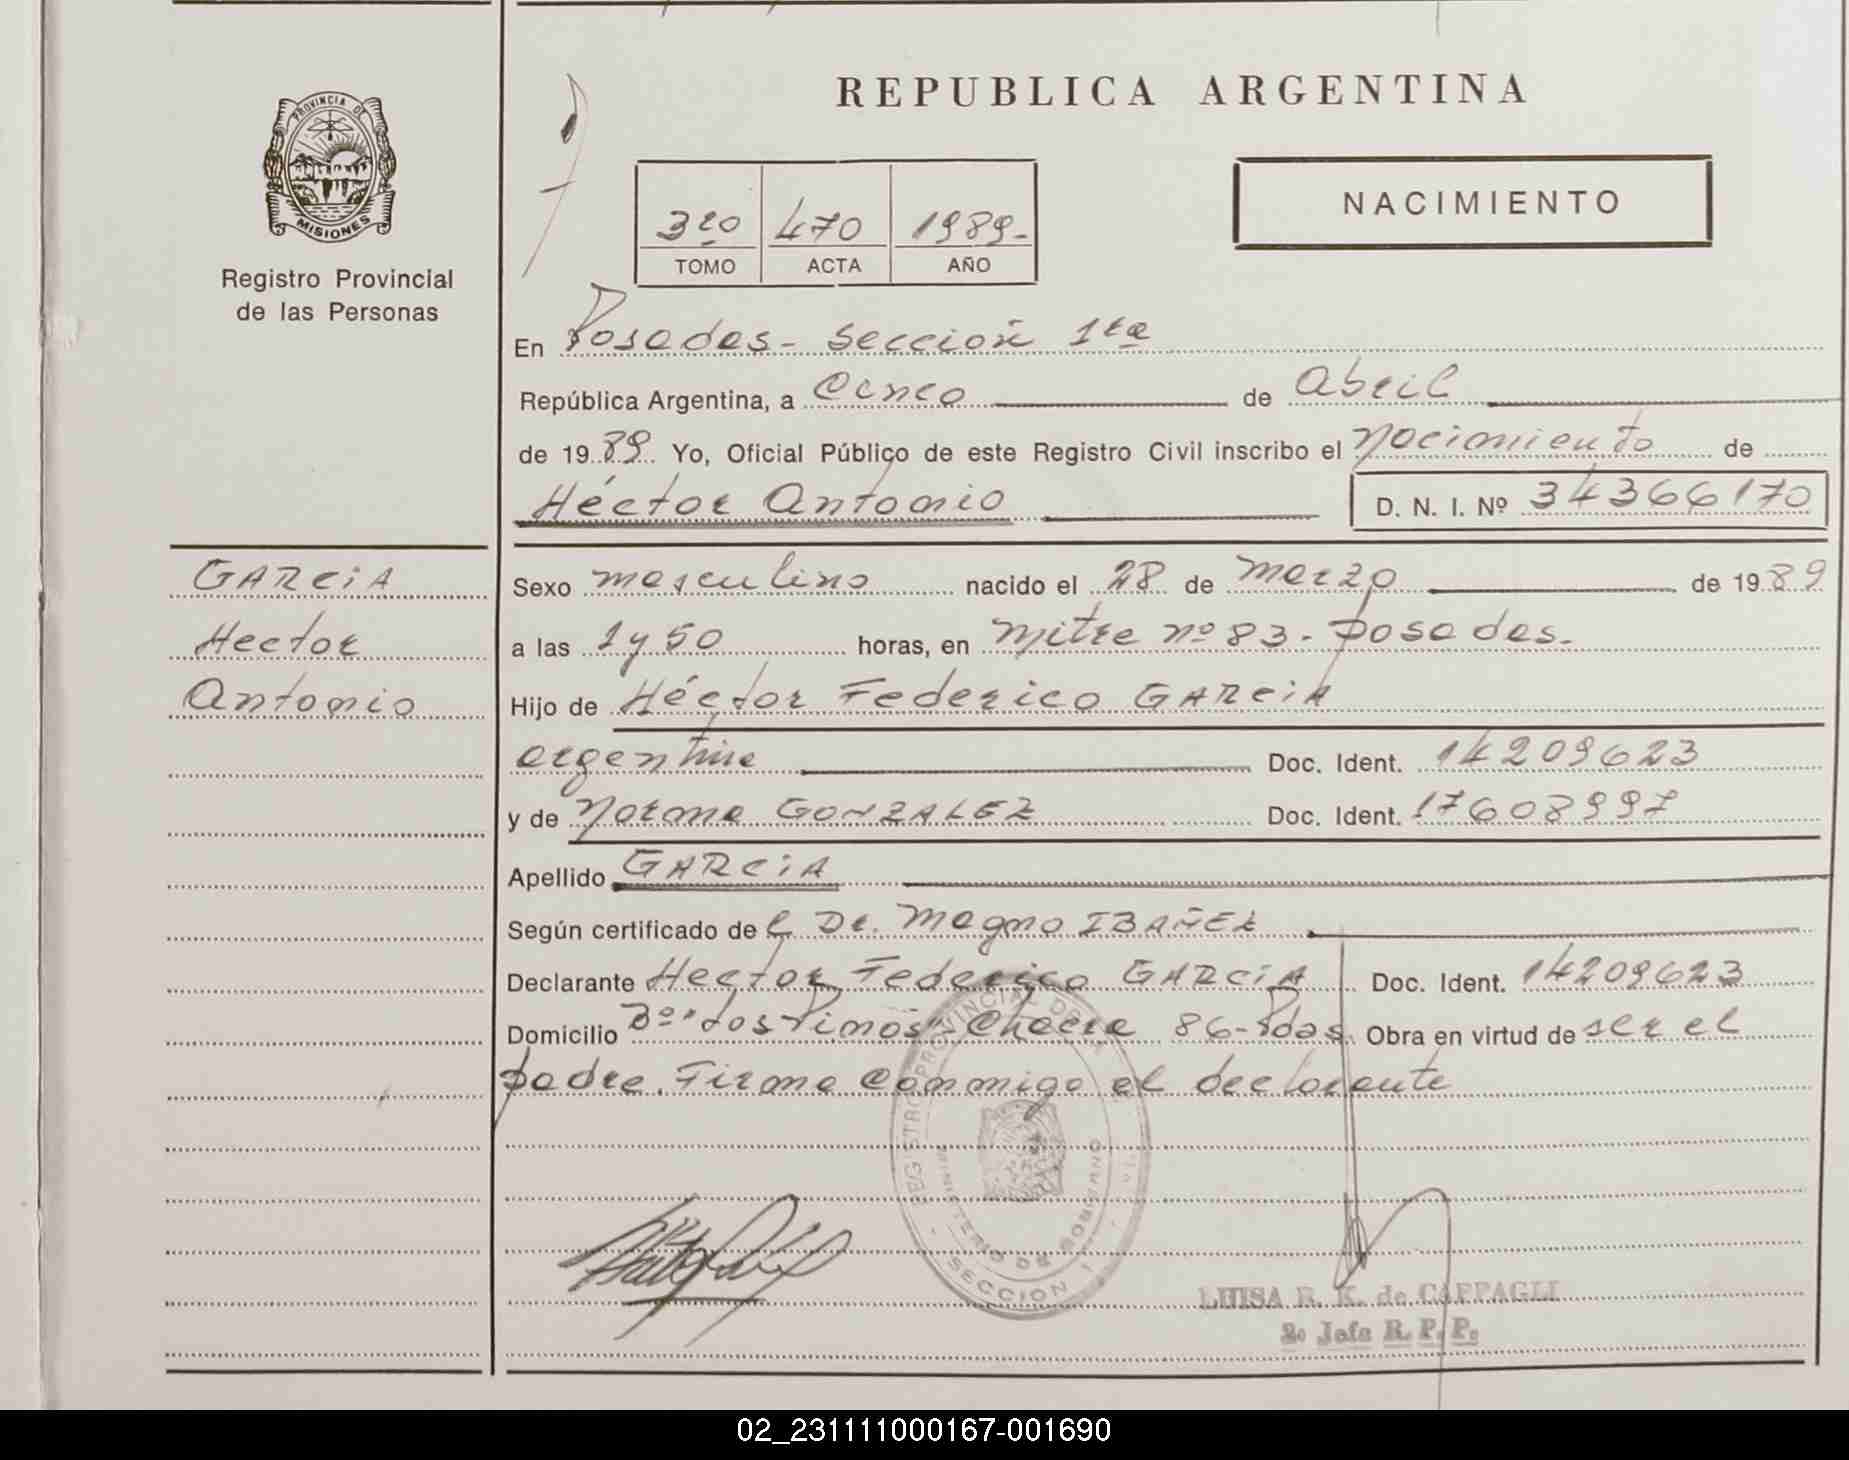 REPUBLICA ARGENTINA
PROVINCIA DE
MISIONES
Registro Provincial
de las Personas
3ro 470 1989-
TOMO ACTA AÑO
NACIMIENTO
En Posadas - sección 1ra
República Argentina, a cinco de abril
de 1989 Yo, Oficial Público de este Registro Civil inscribo el nacimiento de
Héctor Antonio D. N. I. Nº 34366170
GARCiA
Hector
Antonio
Sexo masculino nacido el 28 de marzo de 1989
a las 1 y 50 horas, en mitre nº 83 - posadas.
Hijo de Héctor Federico GARCiA
argentino Doc. Ident. 14209623
y de Norma GONZALEZ Doc. Ident. 17608997
Apellido GARCiA
Según certificado del Dr. Magno IBAÑEZ
Declarante Hector Federico GARCiA Doc. Ident. 14209623
Domicilio Bº "Los Pinos" - Chacra 86 - Pdas Obra en virtud de ser el
padre. Firma conmigo el declarante
REGISTRO PROVINCIAL DE LA
MINISTERIO DE GOBIERNO
SECCION 1
LUISA R. K. de CAFFAGLI
2º Jefe R. P. P.
02_231111000167-001690